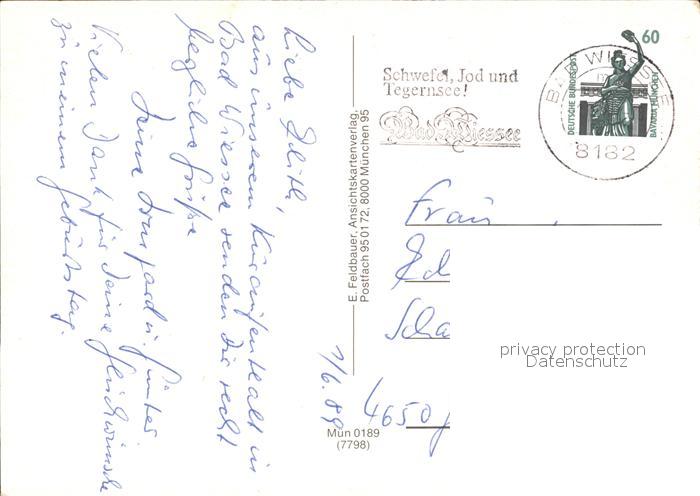 Liebe Edith,
aus unserem Kuraufenthalt in
Bad Wiessee senden Dir recht
herzliche Grüße
Deine Irmgard u. Günter
Vielen Dank für Deine Glückwünsche
zu meinem Geburtstag.
1/6.89
E. Feldbauer, Ansichtskartenverlag,
Postfach 950172, 8000 München 95
Mün 0189
(7798)
Schwefel, Jod und
Tegernsee!
Bad Wiessee
60
DEUTSCHE BUNDESPOST
BAVARIA MÜNCHEN
BAD WIESSEE
8182
Frau
Ed
Scha
4650
privacy protection
Datenschutz